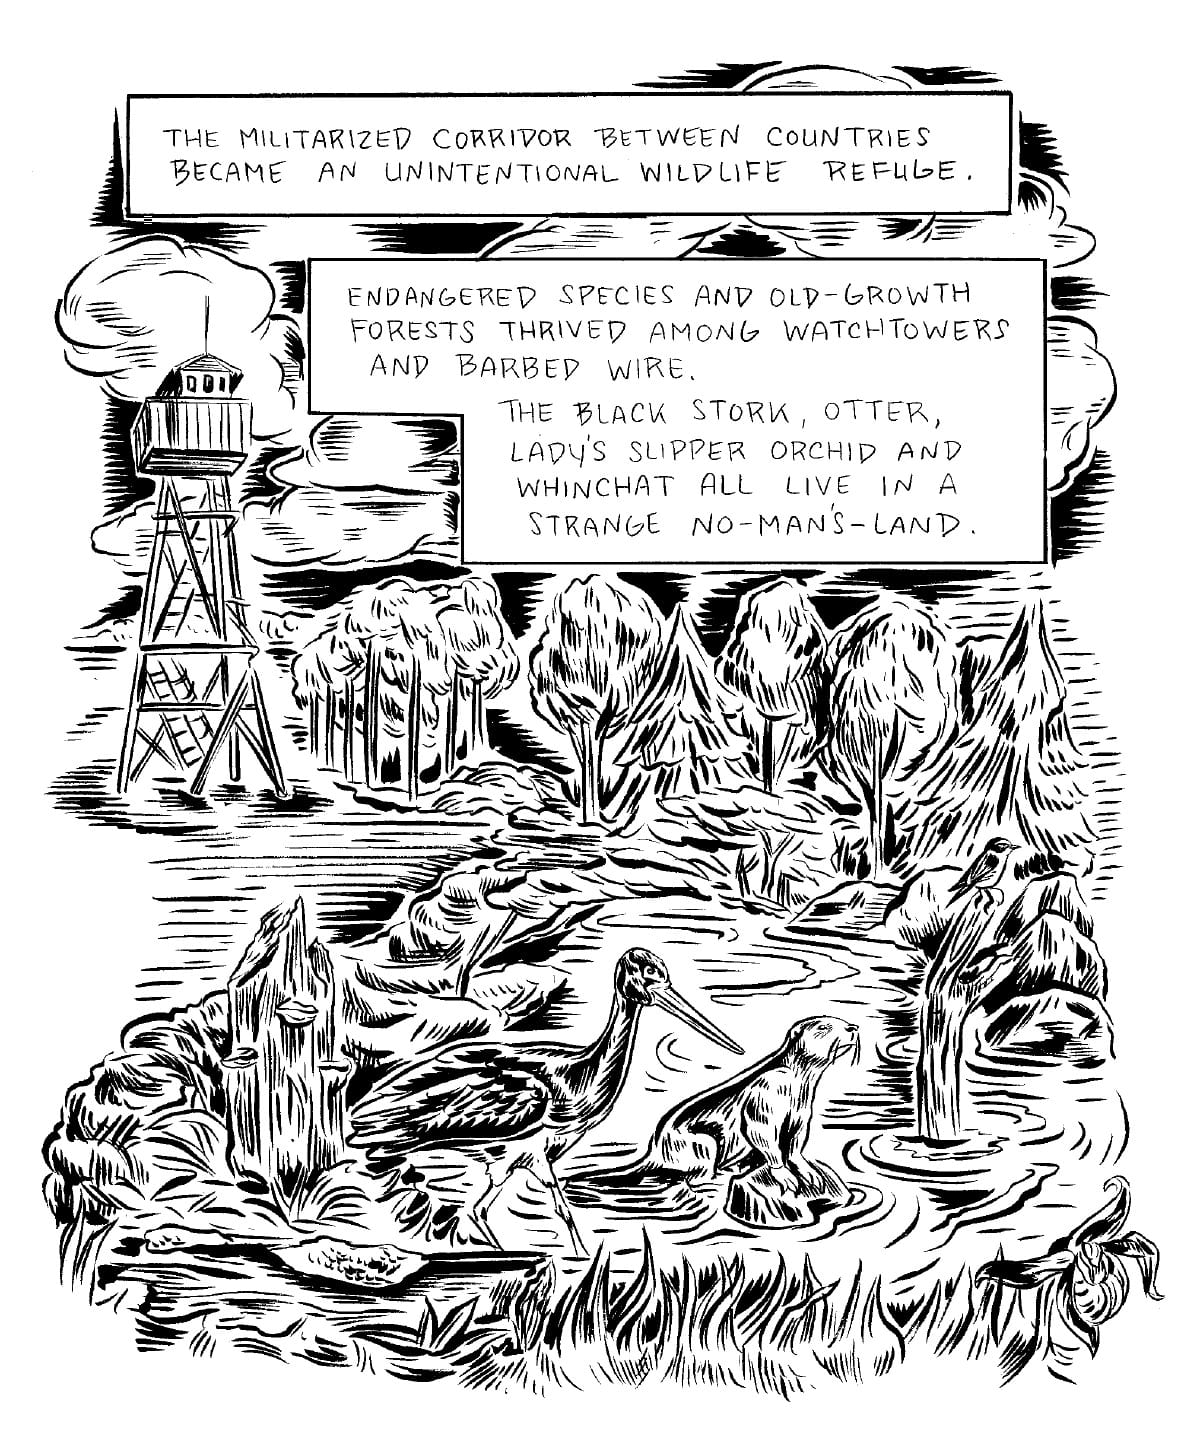 THE MILITARIZED CORRIDOR BETWEEN COUNTRIES
BECAME AN UNINTENTIONAL WILDLIFE REFUGE.
ENDANGERED SPECIES AND OLD-GROWTH
FORESTS THRIVED AMONG WATCHTOWERS
AND BARBED WIRE.
THE BLACK STORK, OTTER,
LADY'S SLIPPER ORCHID AND
WHINCHAT ALL LIVE IN A
STRANGE NO-MAN'S-LAND.